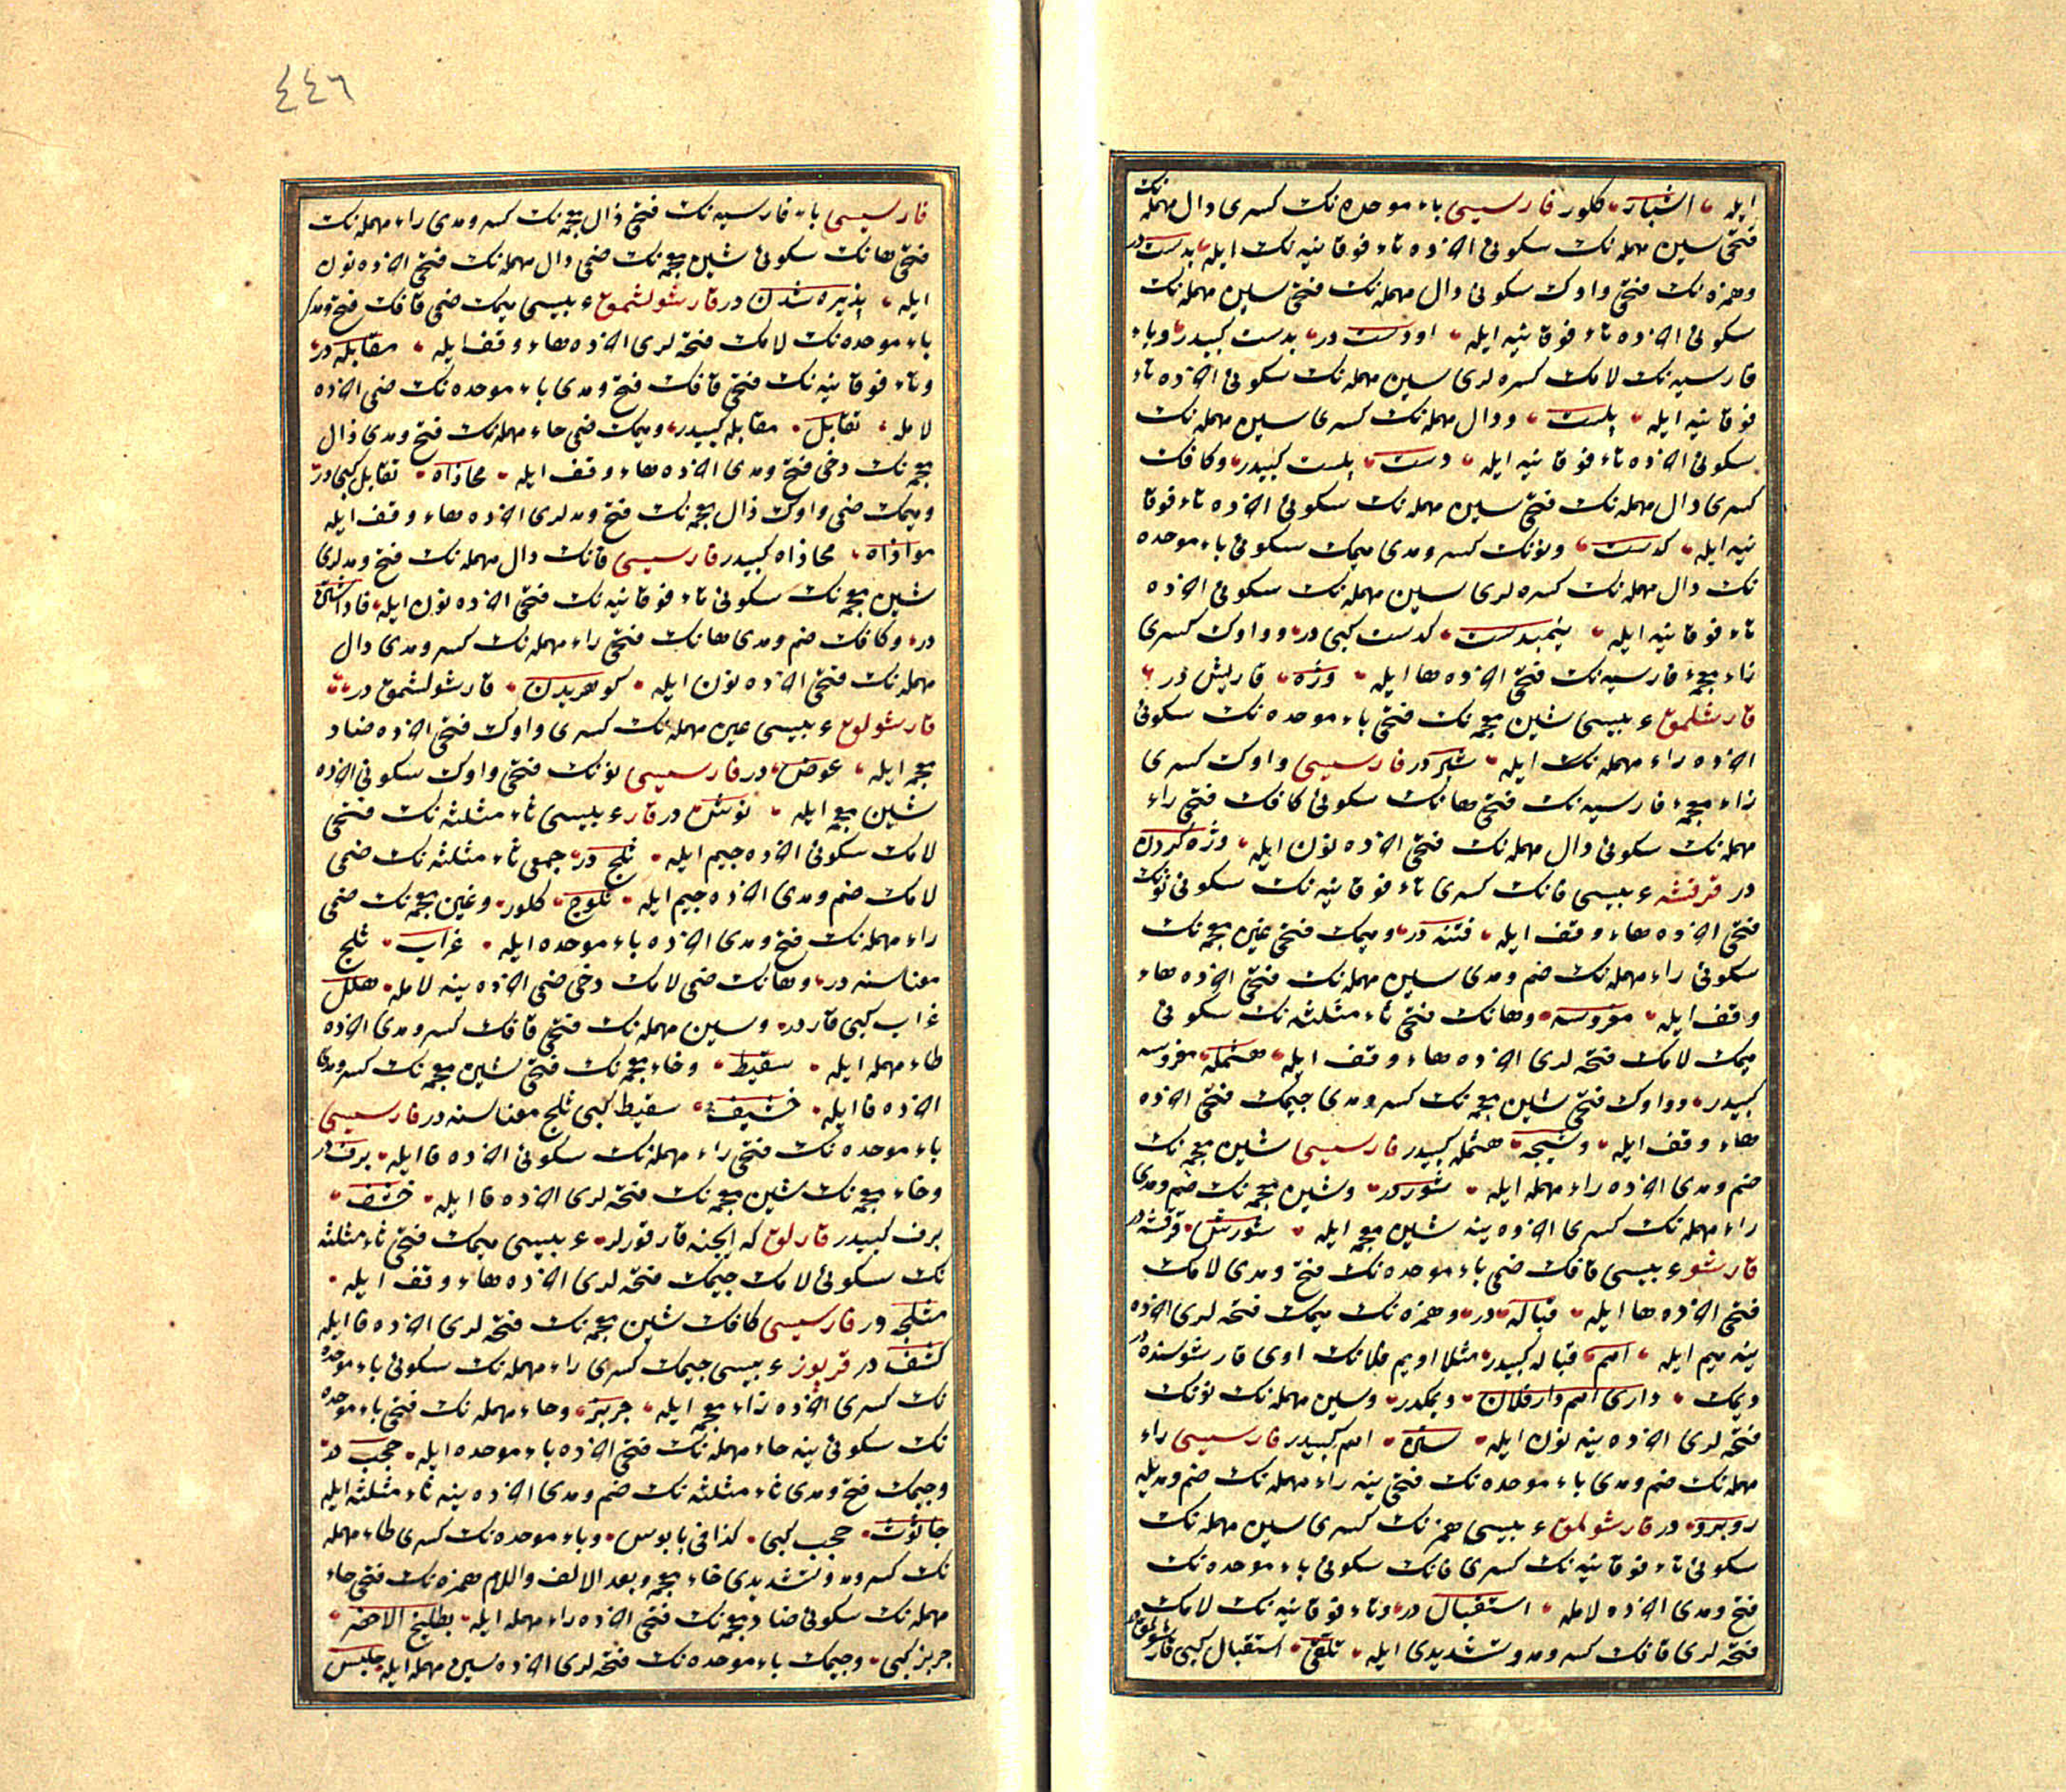 ایله ، اشبار ، کلور فارسیسی باء موحده نک کسری دال مهمله نک
فتحی سین مهمله نک سکونی اخرده تاء فوقانیه نک ایله ، بدست در
وهمزه نک فتحی واوک سکونی دال مهمله نک فتحی سین مهمله نک
سکونی اخرده تاء فوقانیه ایله ، اودست در ، بدست کبیدر ، وباء
فارسیه نک لامک کسره لری سین مهمله نک سکونی اخرده تاء
فوقانیه ایله ، پلست ، ودال مهمله نک کسری سین مهمله نک
سکونی اخرده تاء فوقانیه ایله ، دست ، پلست کبیدر ، وکافک
کسری دال مهمله نک فتحی سین مهمله نک سکونی اخرده تاء فوقا
نیه ایله ، کدست ، ونونک کسر ومدی میمک سکونی باء موحده
نک دال مهمله نک کسره لری سین مهمله نک سکونی اخرده
تاء فوقانیه ایله ، نیمبدست ، کدست کبی در ، وواوک کسری
زاء معجمهٔ فارسیه نک فتحی اخرده ها ایله ، وژه ، قاریش در ،
قارشلمق عربیسی شین معجمه نک فتحی باء موحده نک سکونی
اخرده راء مهمله نک ایله ، شبر در فارسیسی واوک کسری
زاء معجمهٔ فارسیه نک فتحی هانک سکونی کافک فتحی راء
مهمله نک سکونی دال مهمله نک فتحی اخرده نون ایله ، وژه کردن
در قرقشه عربیسی فانک کسری تاء فوقانیه نک سکونی نونک
فتحی اخرده هاء وقف ایله ، فتنه در ، ومیمک فتحی غین معجمه نک
سکونی راء مهمله نک ضم ومدی سین مهمله نک فتحی اخرده هاء
وقف ایله ، مغروسه ، وهانک فتحی ثاء مثلثه نک سکونی
میمک لامک فتحه لری اخرده هاء وقف ایله ، هثمله ، مغروسه
کبیدر ، وواوک فتحی شین معجمه نک کسر ومدی جیمک فتحی اخرده
هاء وقف ایله ، وشیجه ، هثمله کبیدر فارسیسی شین معجمه نک
ضم ومدی اخرده راء مهمله ایله ، شور در ، وشین معجمه نک ضم ومدی
راء مهمله نک کسری اخرده ینه شین معجمه ایله ، شورش ، قرقشه در
قارشو عربیسی قافک ضمی باء موحده نک فتح ومدی لامک
فتحی اخرده ها ایله ، قباله ، در ، وهمزه نک میمک فتحه لری اخرده
ینه میم ایله ، امم ، قباله کبیدر ، مثلا اویم فلانک اوی قارشوسنده در
دیمک ، داری امم دار فلان ، دیمکدر ، وسین مهمله نک نونک
فتحه لری اخرده ینه نون ایله ، سنن ، امم کبیدر فارسیسی راء
مهمله نک ضم ومدی باء موحده نک فتحی ینه راء مهمله نک ضم ومدیله
روبرو ، در قارشولمق عربیسی همزه نک کسری سین مهمله نک
سکونی تاء فوقانیه نک کسری فانک سکونی باء موحده نک
فتح ومدی اخرده لامله ، استقبال در ، وتاء فوقانیه نک لامک
فتحه لری قافک کسر ومد وتشدیدی ایله ، تلقی ، استقبال کبی قارشولمق در
٤٤٦
فارسیسی باء فارسیه نک فتحی ذال معجمه نک کسر ومدی راء مهمله نک
فتحی هانک سکونی شین معجمه نک ضمی دال مهمله نک فتحی اخرده نون
ایله ، پذیره شدن در قارشولشمق عربیسی میمک ضمی قافک فتح ومدی
باء موحده نک لامک فتحه لری اخرده هاء وقف ایله ، مقابله در ،
وتاء فوقانیه نک فتحی قافک فتح ومدی باء موحده نک ضمی اخرده
لامله ، تقابل ، مقابله کبیدر ، ومیمک ضمی حاء مهمله نک فتح ومدی ذال
معجمه نک دخی فتح ومدی اخرده هاء وقف ایله ، محاذاه ، تقابل کبی در ،
ومیمک ضمی واوک ذال معجمه نک فتح ومدلری اخرده هاء وقف ایله
مواذاه ، محاذاه کبیدر فارسیسی فانک دال مهمله نک فتح ومدلری
شین معجمه نک سکونی تاء فوقانیه نک فتحی اخرده نون ایله ، فاداشتن
در ، وکافک ضم ومدی هانک فتحی راء مهمله نک کسر ومدی دال
مهمله نک فتحی اخرده نون ایله ، کوهریدن ، قارشولشمق در ،
قارشولق عربیسی عین مهمله نک کسری واوک فتحی اخرده ضاد
معجمه ایله ، عوض ، در فارسیسی نونک فتحی واوک سکونی اخرده
شین معجمه ایله ، نوش در قار عربیسی ثاء مثلثه نک فتحی
لامک سکونی اخرده جیم ایله ، ثلج در ، جمعی ثاء مثلثه نک ضمی
لامک ضم ومدی اخرده جیم ایله ، ثلوج ، کلور ، وغین معجمه نک ضمی
راء مهمله نک فتح ومدی اخرده باء موحده ایله ، غراب ، ثلج
معناسنه در ، وهانک ضمی لامک دخی ضمی اخرده ینه لامله ، هلل
غراب کبی قار در ، وسین مهمله نک فتحی قافک کسر ومدی اخرده
طاء مهمله ایله ، سقیط ، وخاء معجمه نک فتحی شین معجمه نک کسر ومدی
اخرده فا ایله ، خشیف ، سقیط کبی ثلج معناسنه در فارسیسی
باء موحده نک فتحی راء مهمله نک سکونی اخرده فا ایله ، برف در
وخاء معجمه نک شین معجمه نک فتحه لری اخرده فا ایله ، خشف ،
برف کبیدر قارلق که ایچنه قار قورلر ، عربیسی میمک فتحی ثاء مثلثه
نک سکونی لامک جیمک فتحه لری اخرده هاء وقف ایله ،
مثلجه در فارسیسی کافک شین معجمه نک فتحه لری اخرده فا ایله
کشف در قرپوز عربیسی جیمک کسری راء مهمله نک سکونی باء موحده
نک کسری اخرده زاء معجمه ایله ، جربز ، وحاء مهمله نک فتحی باء موحده
نک سکونی ینه حاء مهمله نک فتحی اخرده باء موحده ایله ، حبحب در ،
وجیمک فتح ومدی ثاء مثلثه نک ضم ومدی اخرده ینه ثاء مثلثه ایله
جاثوث ، حبحب کبی ، کذا فی بابوس ، وباء موحده نک کسری طاء مهمله
نک کسر ومد وتشدیدی خاء معجمه وبعد الالف واللام همزه نک فتحی خاء
مهمله نک سکونی ضاد معجمه نک فتحی اخرده راء مهمله ایله ، بطیخ الاخضر ،
جربز کبی ، وجیمک باء موحده نک فتحه لری اخرده سین مهمله ایله جبس